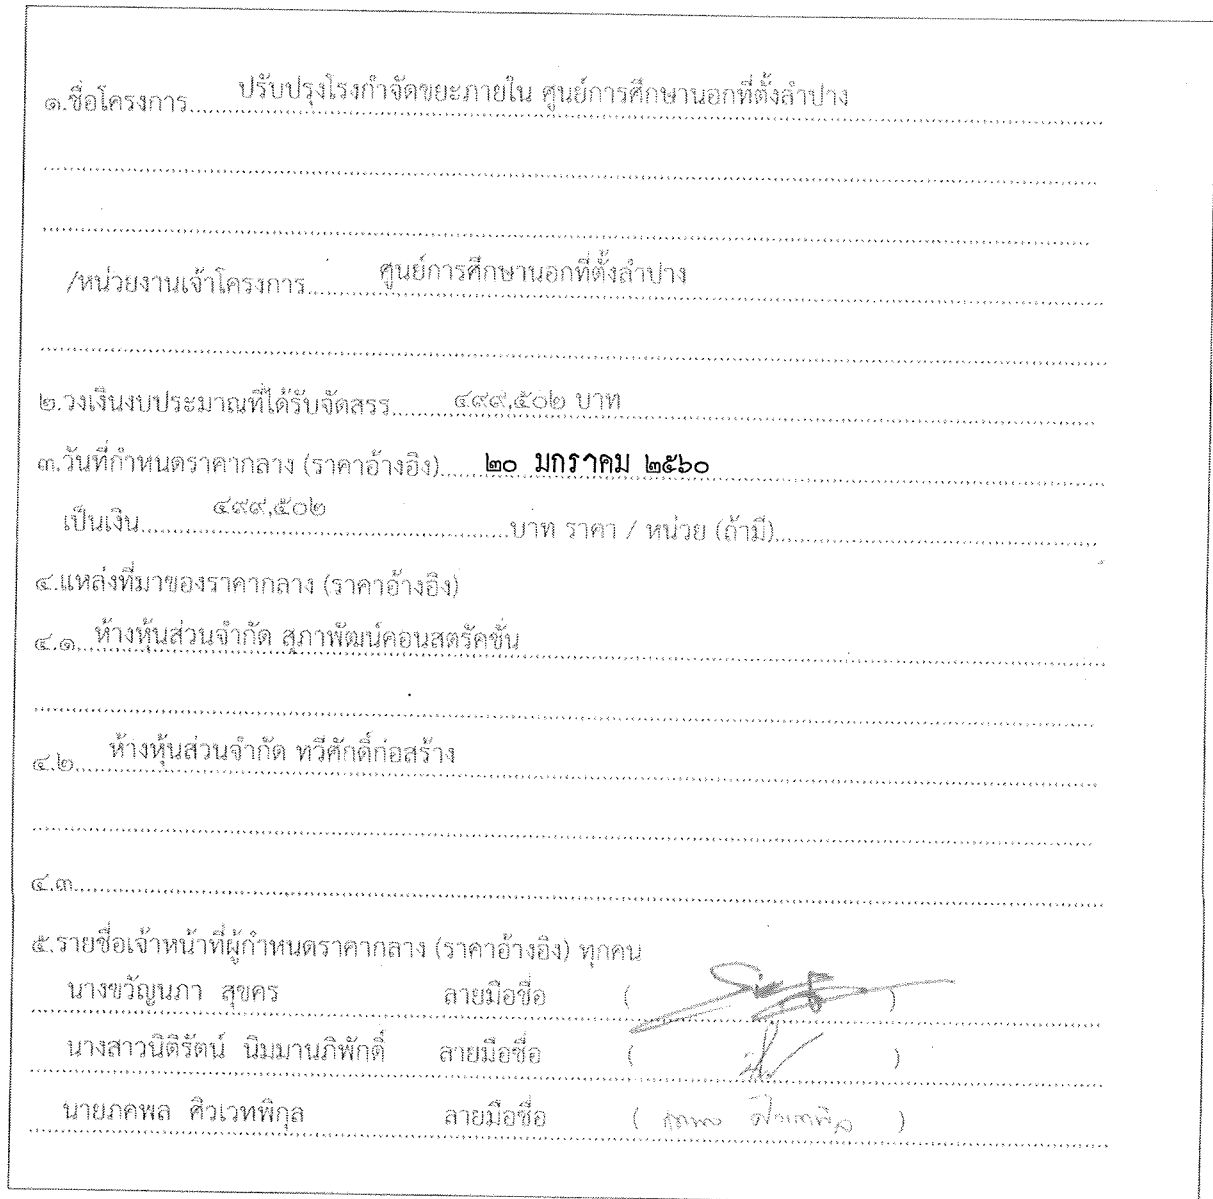 ๑.ชื่อโครงการ..... ปรับปรุงโรงกำจัดขยะภายใน ศูนย์การศึกษานอกที่ตั้งลำปาง
/หน่วยงานเจ้าโครงการ..... ศูนย์การศึกษานอกที่ตั้งลำปาง
๒.วงเงินงบประมาณที่ได้รับจัดสรร..... ๔๙๙,๕๐๒ บาท
๓.วันที่กำหนดราคากลาง (ราคาอ้างอิง)..... ๒๐ มกราคม ๒๕๖๐
เป็นเงิน..... ๔๙๙,๕๐๒ .....บาท ราคา / หน่วย (ถ้ามี).....
๔.แหล่งที่มาของราคากลาง (ราคาอ้างอิง)
๔.๑. ห้างหุ้นส่วนจำกัด สุภาพัฒน์คอนสตรัคชั่น
๔.๒..... ห้างหุ้นส่วนจำกัด ทวีศักดิ์ก่อสร้าง
๔.๓.....
๕.รายชื่อเจ้าหน้าที่ผู้กำหนดราคากลาง (ราคาอ้างอิง) ทุกคน
นางขวัญนภา สุขคร ลายมือชื่อ ( )
นางสาวนิติรัตน์ นิมมานภิพักดิ์ ลายมือชื่อ ( )
นายภคพล ศิวเวทพิกุล ลายมือชื่อ ( )